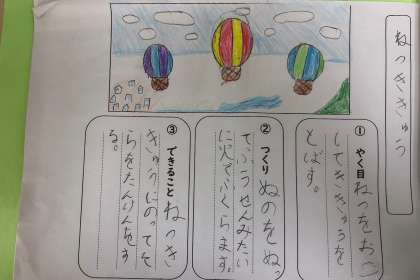 ねつききゅう
① やく目
ねつをおこ
してききゅうを
とばす。
② つくり
ぬのをぬっ
てふうせんみたい
に空でふくらます。
③ できること
ねつき
きゅうにのってそ
らをたんけんをす
る。